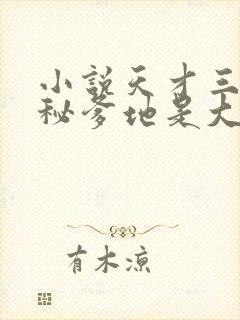 小说天才三
秘爹地是大
有木凉